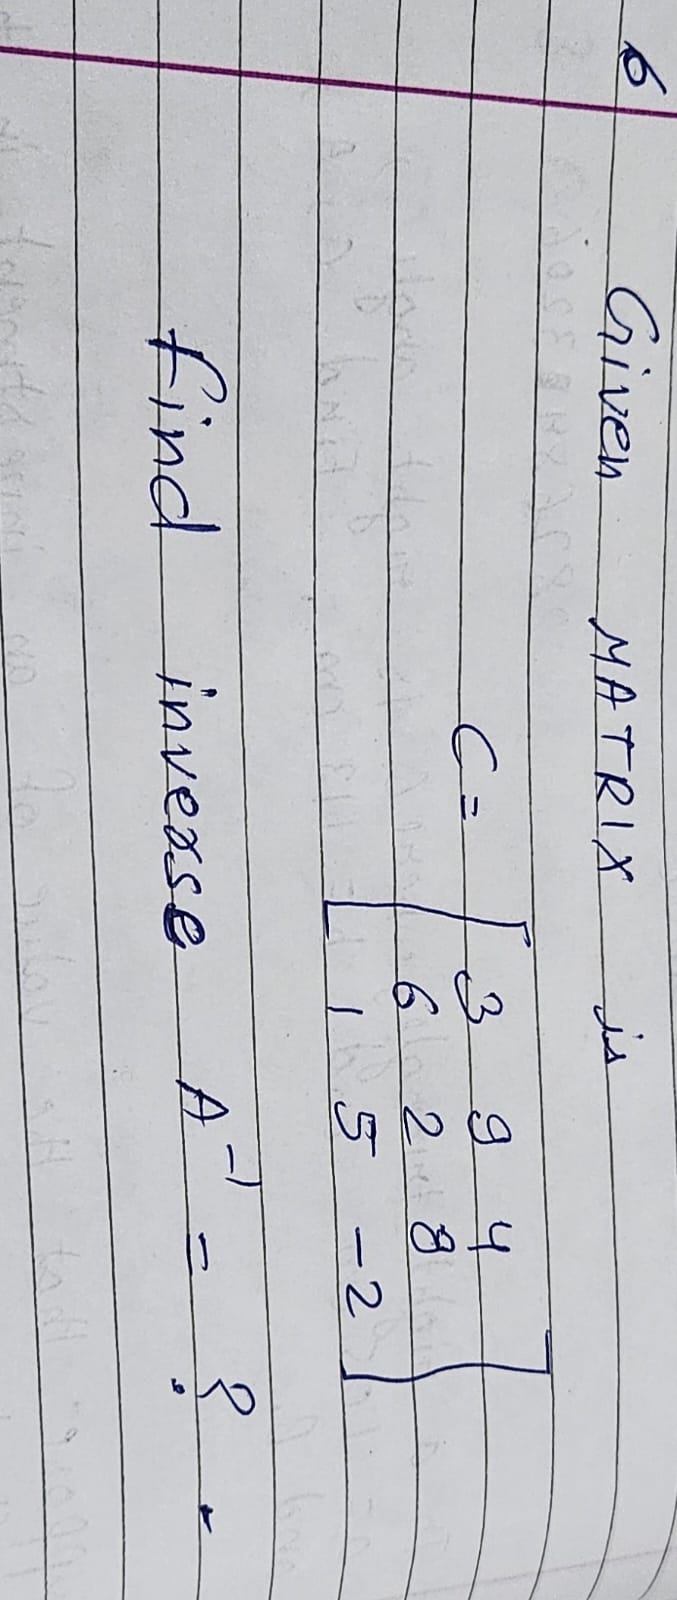 6 Given MATRIX is
C = [ 3 9 4
6 2 8
1 5 -2 ]
find inverse A⁻¹ = ? .